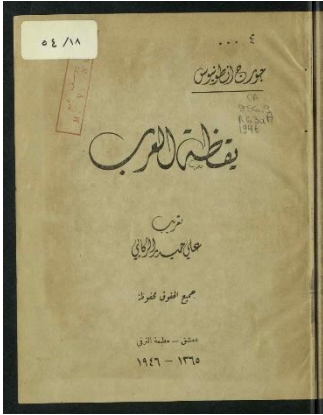 ٥٤/١٨
٤ ...
جورج انطونيوس
CA
956.9
A63aA
1946
يقظة العرب
تعريب
علي حيدر الركابي
جميع الحقوق محفوظة
دمشق — مطبعة الترقي
١٣٦٥ — ١٩٤٦